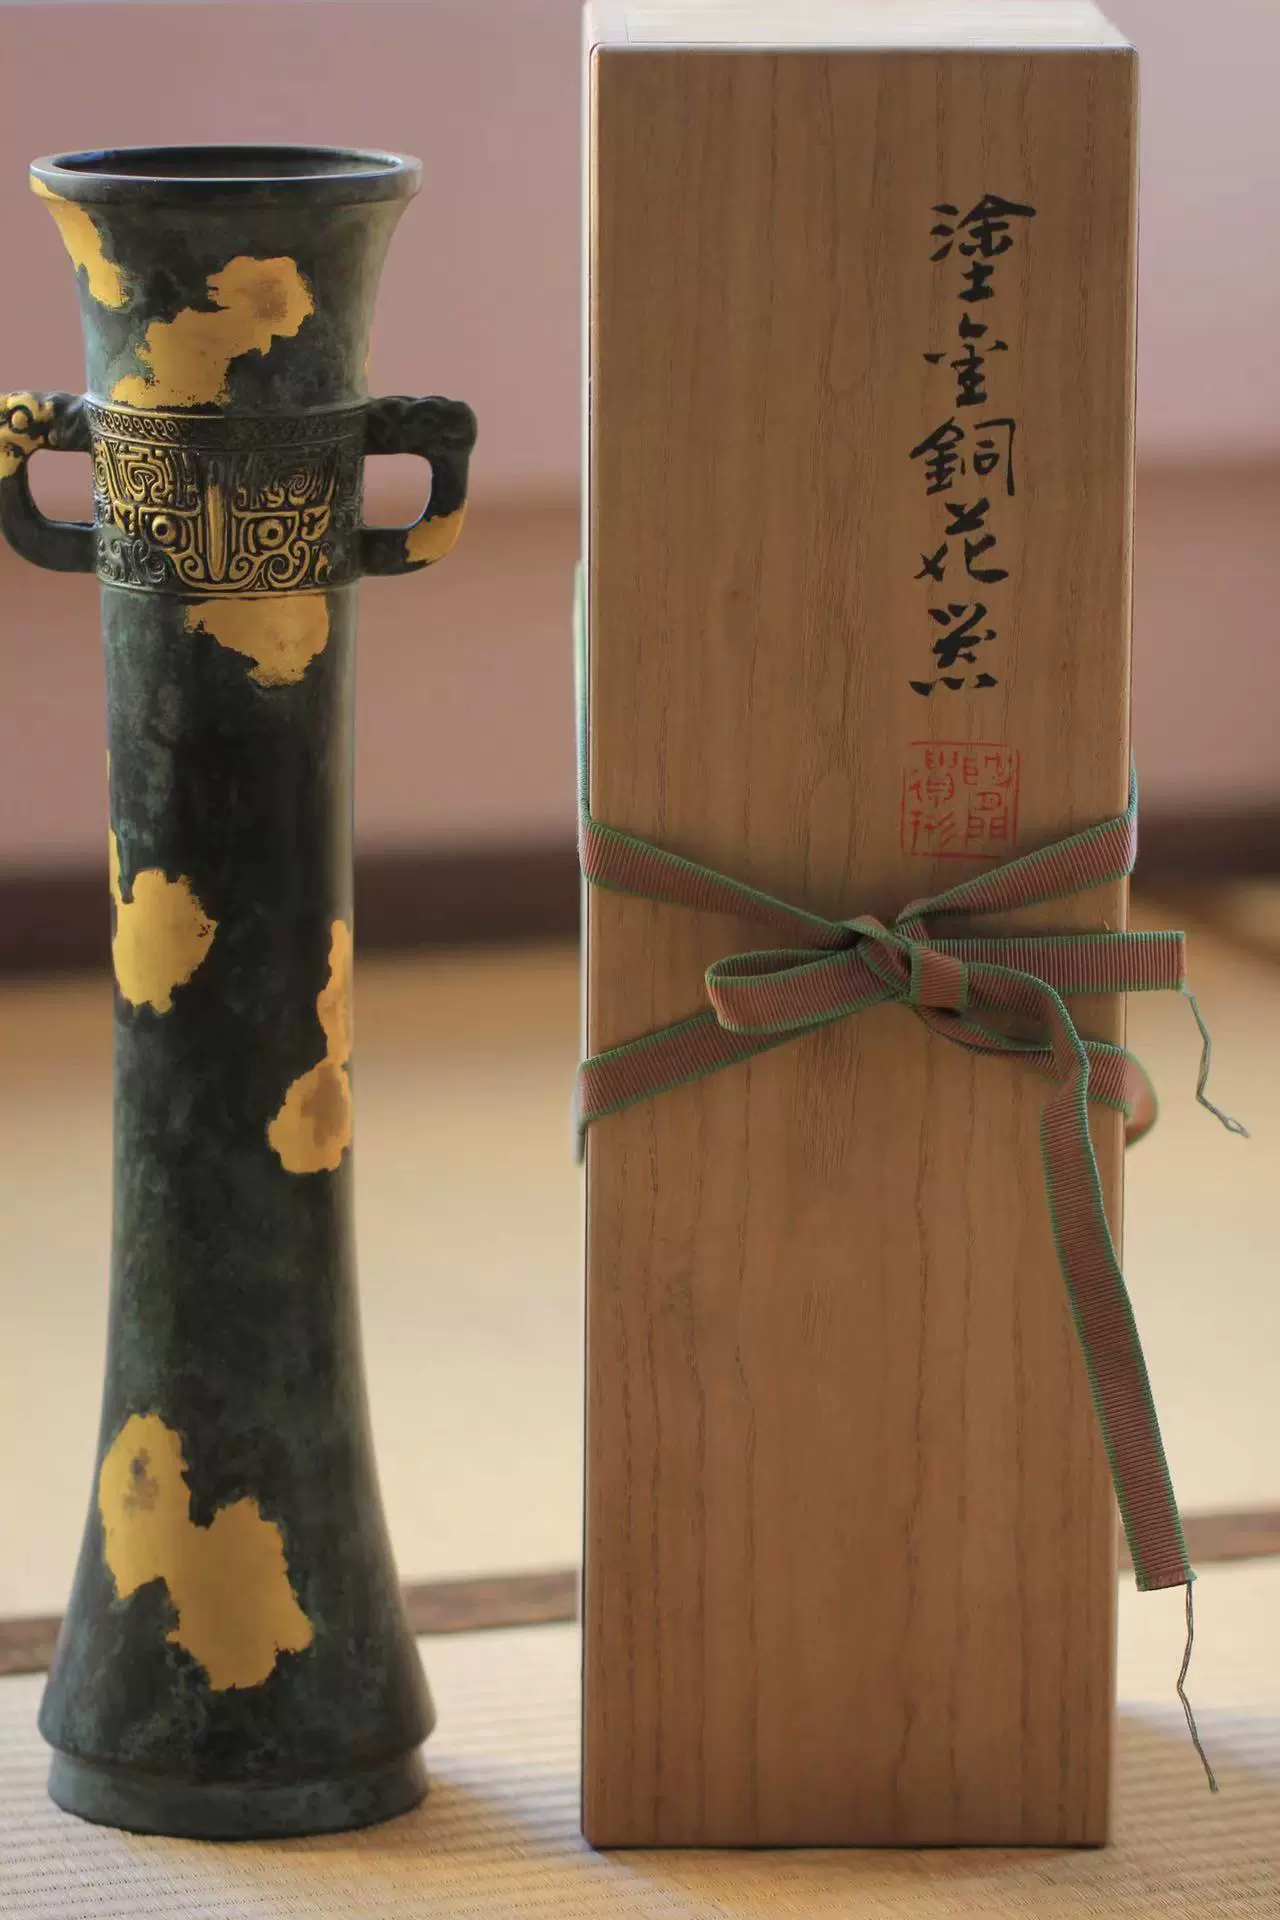 塗金銅花器